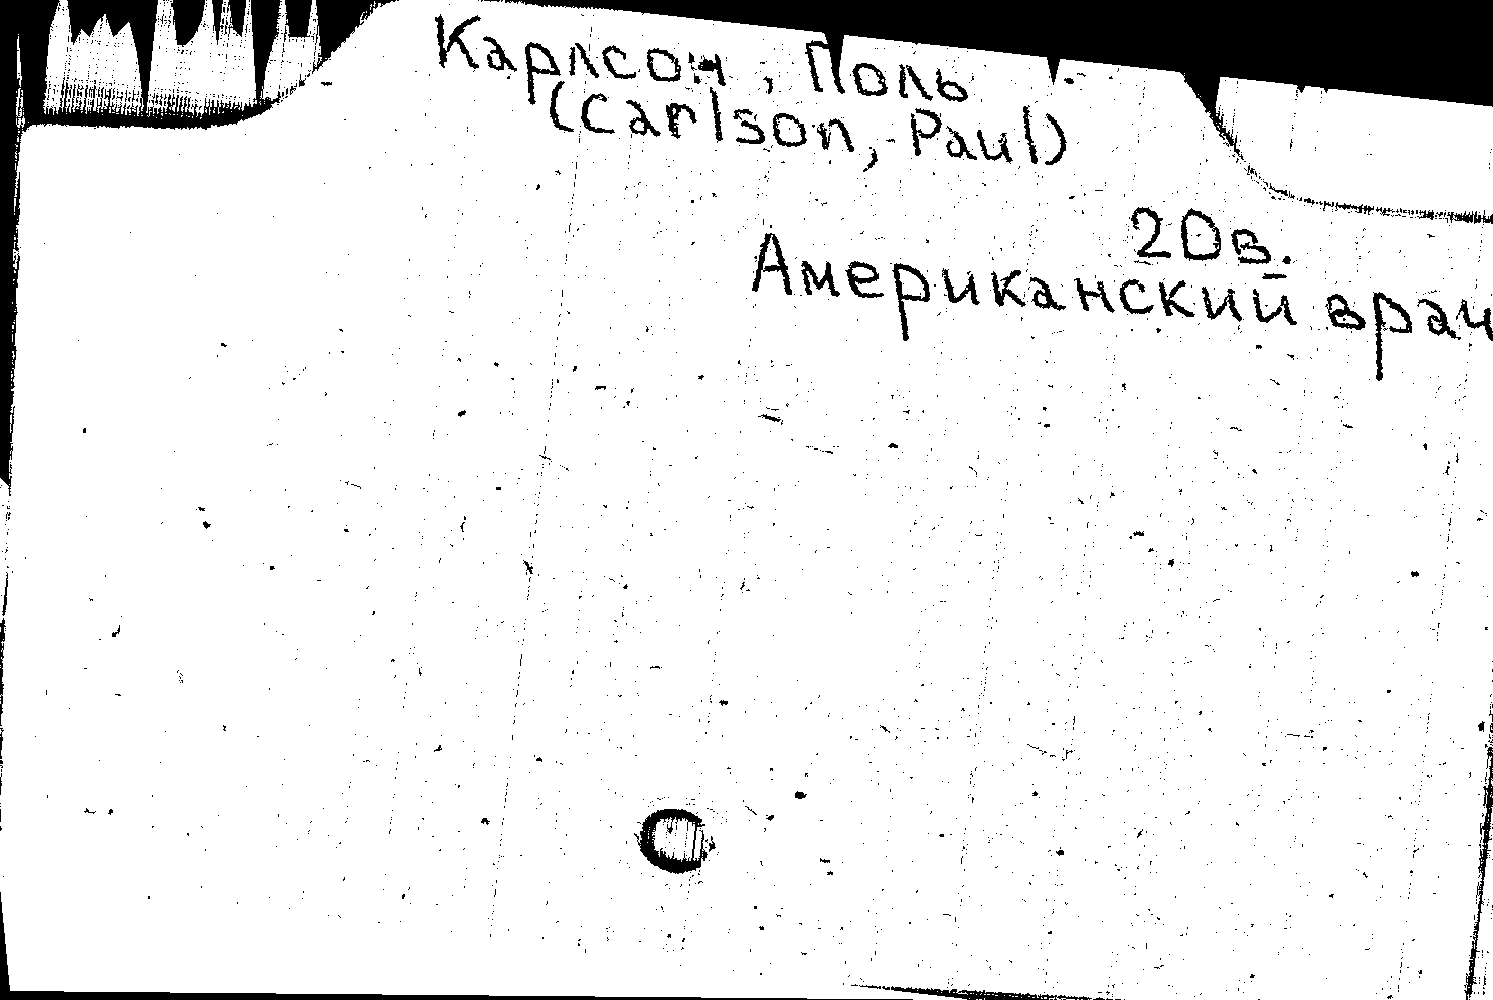 Карлсон, Поль
(Carlson, Paul)
20в.
Американский врач